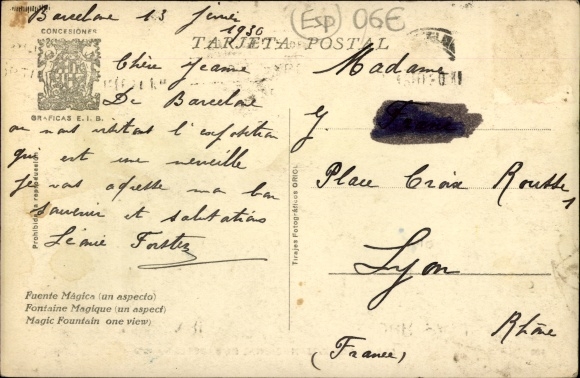 Barcelone 13 janvier 1930
(Esp) 06€
CONCESIONES
TARJETA POSTAL
GRAFICAS E. I. B.
Prohibida la reproducción
Chère Jeanne
De Barcelone
ou nous visitons l'exposition
qui est une merveille
je vous adresse mon bon
souvenir et salutations
Léonie Forster
Fuente Mágica (un aspecto)
Fontaine Magique (un aspect)
Magic Fountain one view)
Tirajes Fotográficos ORIOL
Madame
J.
Place Croix Rousse 1
Lyon
Rhône
(France)